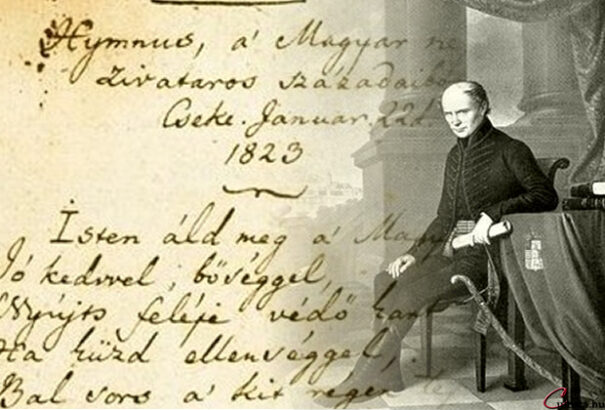 Hymnus, a' Magyar ne
zivataros századaiból
Cseke. Januar. 22d.
1823
Isten áld meg a' Magy
Jó kedvvel, bőséggel,
Nyújts feléje védő kart
Ha küzd ellenséggel,
Bal sors a' kit régen te